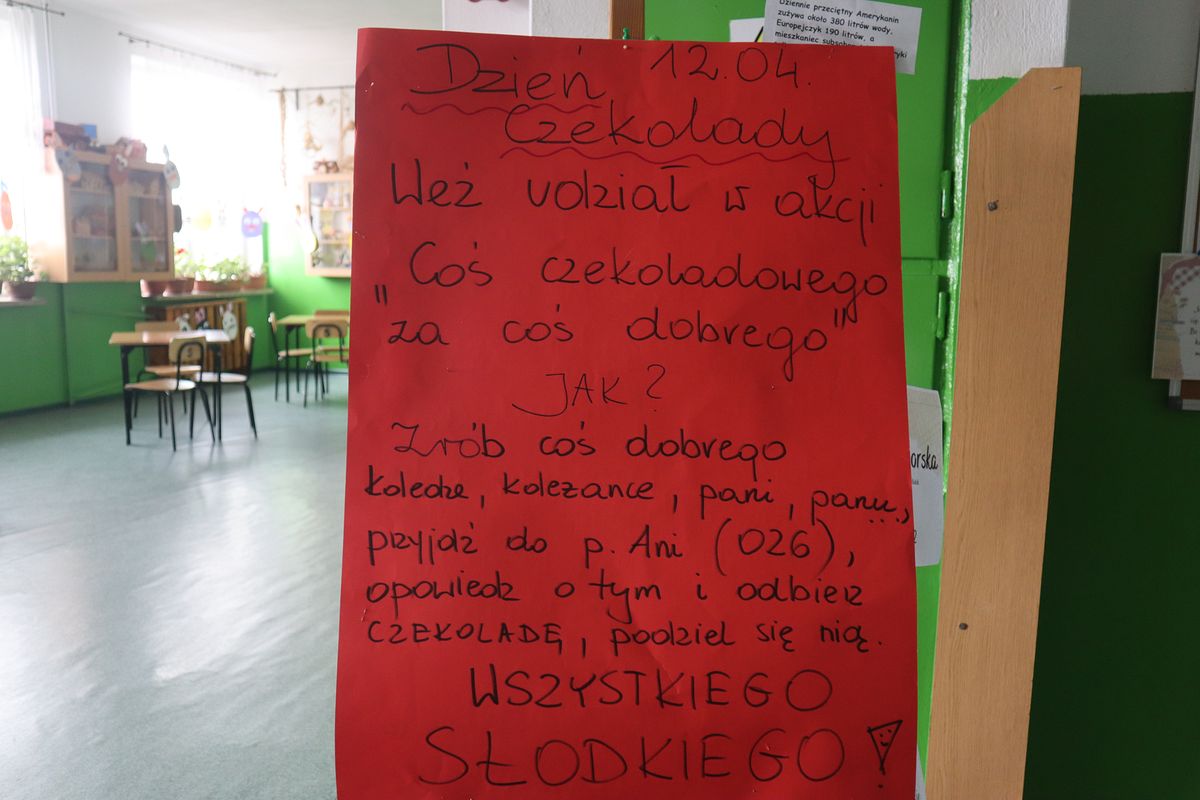 Dziennie przeciętny Amerykanin
zużywa około 380 litrów wody,
Europejczyk 190 litrów, a
mieszkaniec
Dzień 12.04.
Czekolady
Weź udział w akcji
„Coś czekoladowego
za coś dobrego"
JAK?
Zrób coś dobrego
koledze, koleżance, pani, panu...,
przyjdź do p. Ani (026),
opowiedz o tym i odbierz
CZEKOLADĘ, podziel się nią.
WSZYSTKIEGO
SŁODKIEGO!
orska